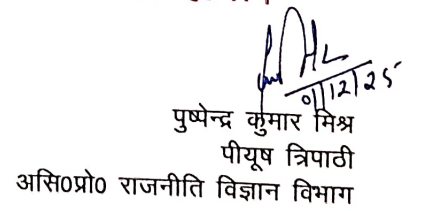 01/12/25
पुष्पेन्द्र कुमार मिश्र
पीयूष त्रिपाठी
असि0प्रो0 राजनीति विज्ञान विभाग